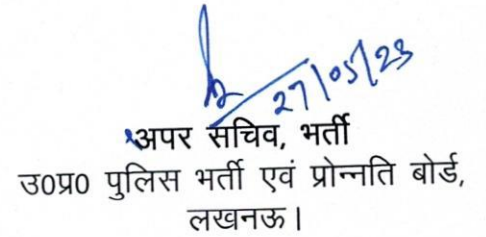 27/05/23
अपर सचिव, भर्ती
उ0प्र0 पुलिस भर्ती एवं प्रोन्नति बोर्ड,
लखनऊ।